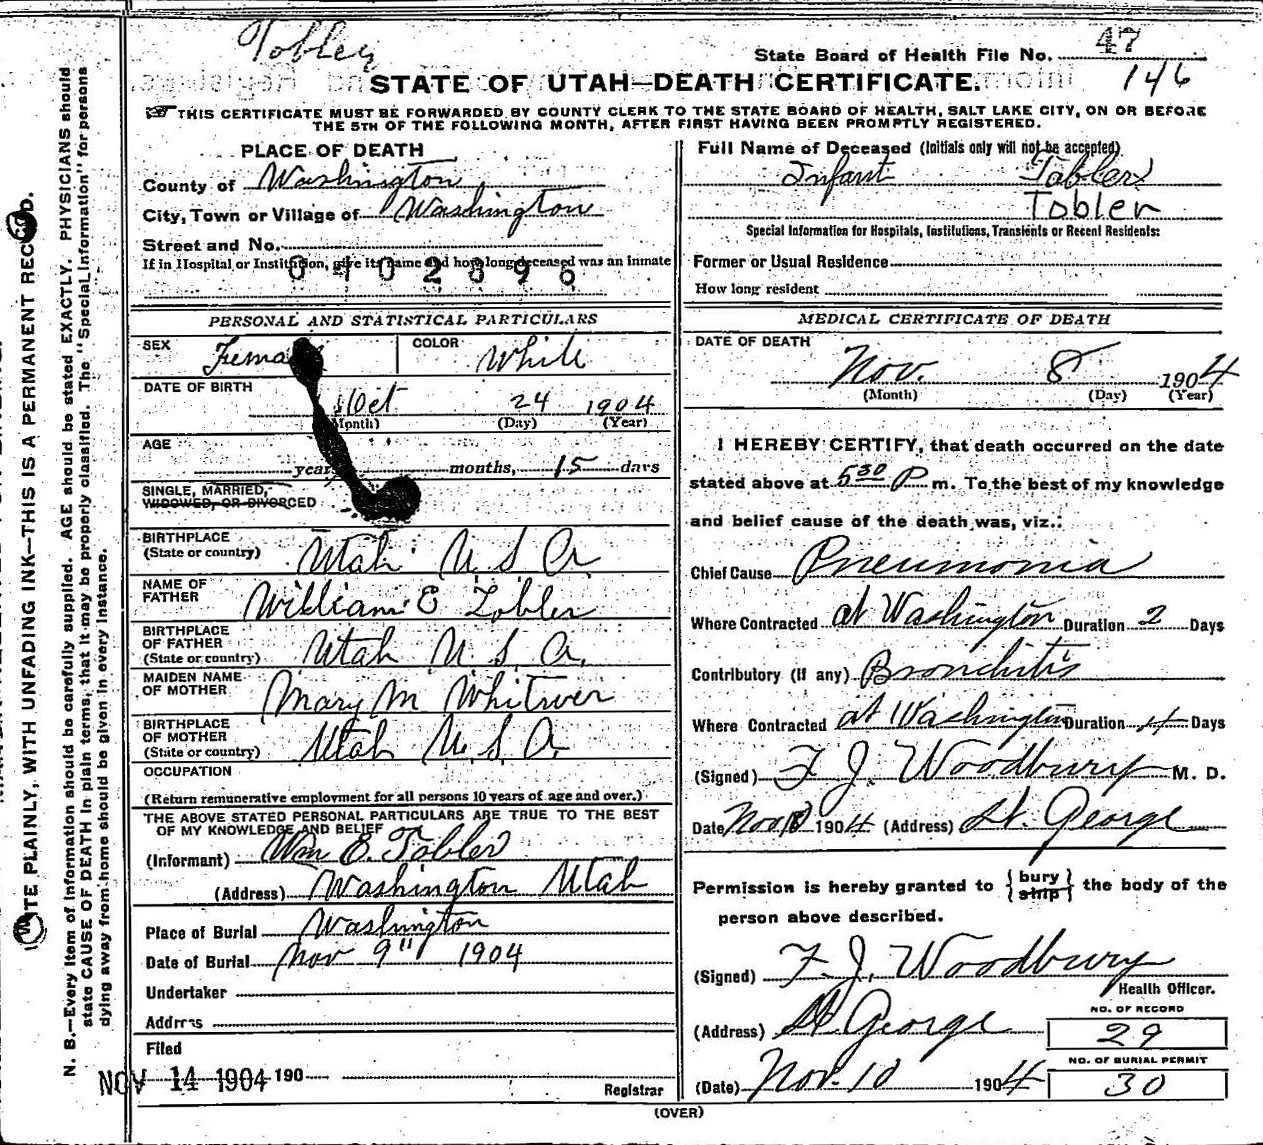 Tobler
State Board of Health File No. 47
146
STATE OF UTAH—DEATH CERTIFICATE.
THIS CERTIFICATE MUST BE FORWARDED BY COUNTY CLERK TO THE STATE BOARD OF HEALTH, SALT LAKE CITY, ON OR BEFORE
THE 5TH OF THE FOLLOWING MONTH, AFTER FIRST HAVING BEEN PROMPTLY REGISTERED.
PLACE OF DEATH
County of Washington
City, Town or Village of Washington
Street and No.
If in Hospital or Institution, give its name and how long deceased was an inmate
0402896
Full Name of Deceased (Initials only will not be accepted)
Infant Tobler
Tobler
Special Information for Hospitals, Institutions, Transients or Recent Residents:
Former or Usual Residence
How long resident
PERSONAL AND STATISTICAL PARTICULARS
SEX Female COLOR White
DATE OF BIRTH
Oct 24 1904
(Month) (Day) (Year)
AGE
years months, 15 days
SINGLE, MARRIED,
WIDOWED, OR DIVORCED
BIRTHPLACE
(State or country) Utah U. S. A.
NAME OF
FATHER William E Tobler
BIRTHPLACE
OF FATHER
(State or country) Utah U. S. A.
MAIDEN NAME
OF MOTHER Mary M Whitwer
BIRTHPLACE
OF MOTHER
(State or country) Utah U. S. A.
OCCUPATION
(Return remunerative employment for all persons 10 years of age and over.)
THE ABOVE STATED PERSONAL PARTICULARS ARE TRUE TO THE BEST
OF MY KNOWLEDGE AND BELIEF
(Informant) Wm E. Tobler
(Address) Washington Utah
Place of Burial Washington
Date of Burial Nov 9" 1904
Undertaker
Address
Filed
NOV 14 1904 190
Registrar
MEDICAL CERTIFICATE OF DEATH
DATE OF DEATH
Nov. 8 1904
(Month) (Day) (Year)
I HEREBY CERTIFY, that death occurred on the date
stated above at 5 30 P m. To the best of my knowledge
and belief cause of the death was, viz.:
Chief Cause Pneumonia
Where Contracted at Washington Duration 2 Days
Contributory (if any) Bronchitis
Where Contracted at Washington Duration 4 Days
(Signed) F J. Woodbury M. D.
Date Nov 1904 (Address) St. George
Permission is hereby granted to { bury } the body of the
ship
person above described.
(Signed) F. J. Woodbury
Health Officer.
(Address) St George
NO. OF RECORD
29
NO. OF BURIAL PERMIT
30
(Date) Nov. 10 1904
(OVER)
WRITE PLAINLY, WITH UNFADING INK—THIS IS A PERMANENT RECORD.
N. B.—Every item of information should be carefully supplied. AGE should be stated EXACTLY. PHYSICIANS should
state CAUSE OF DEATH in plain terms, that it may be properly classified. The "Special Information" for persons
dying away from home should be given in every instance.